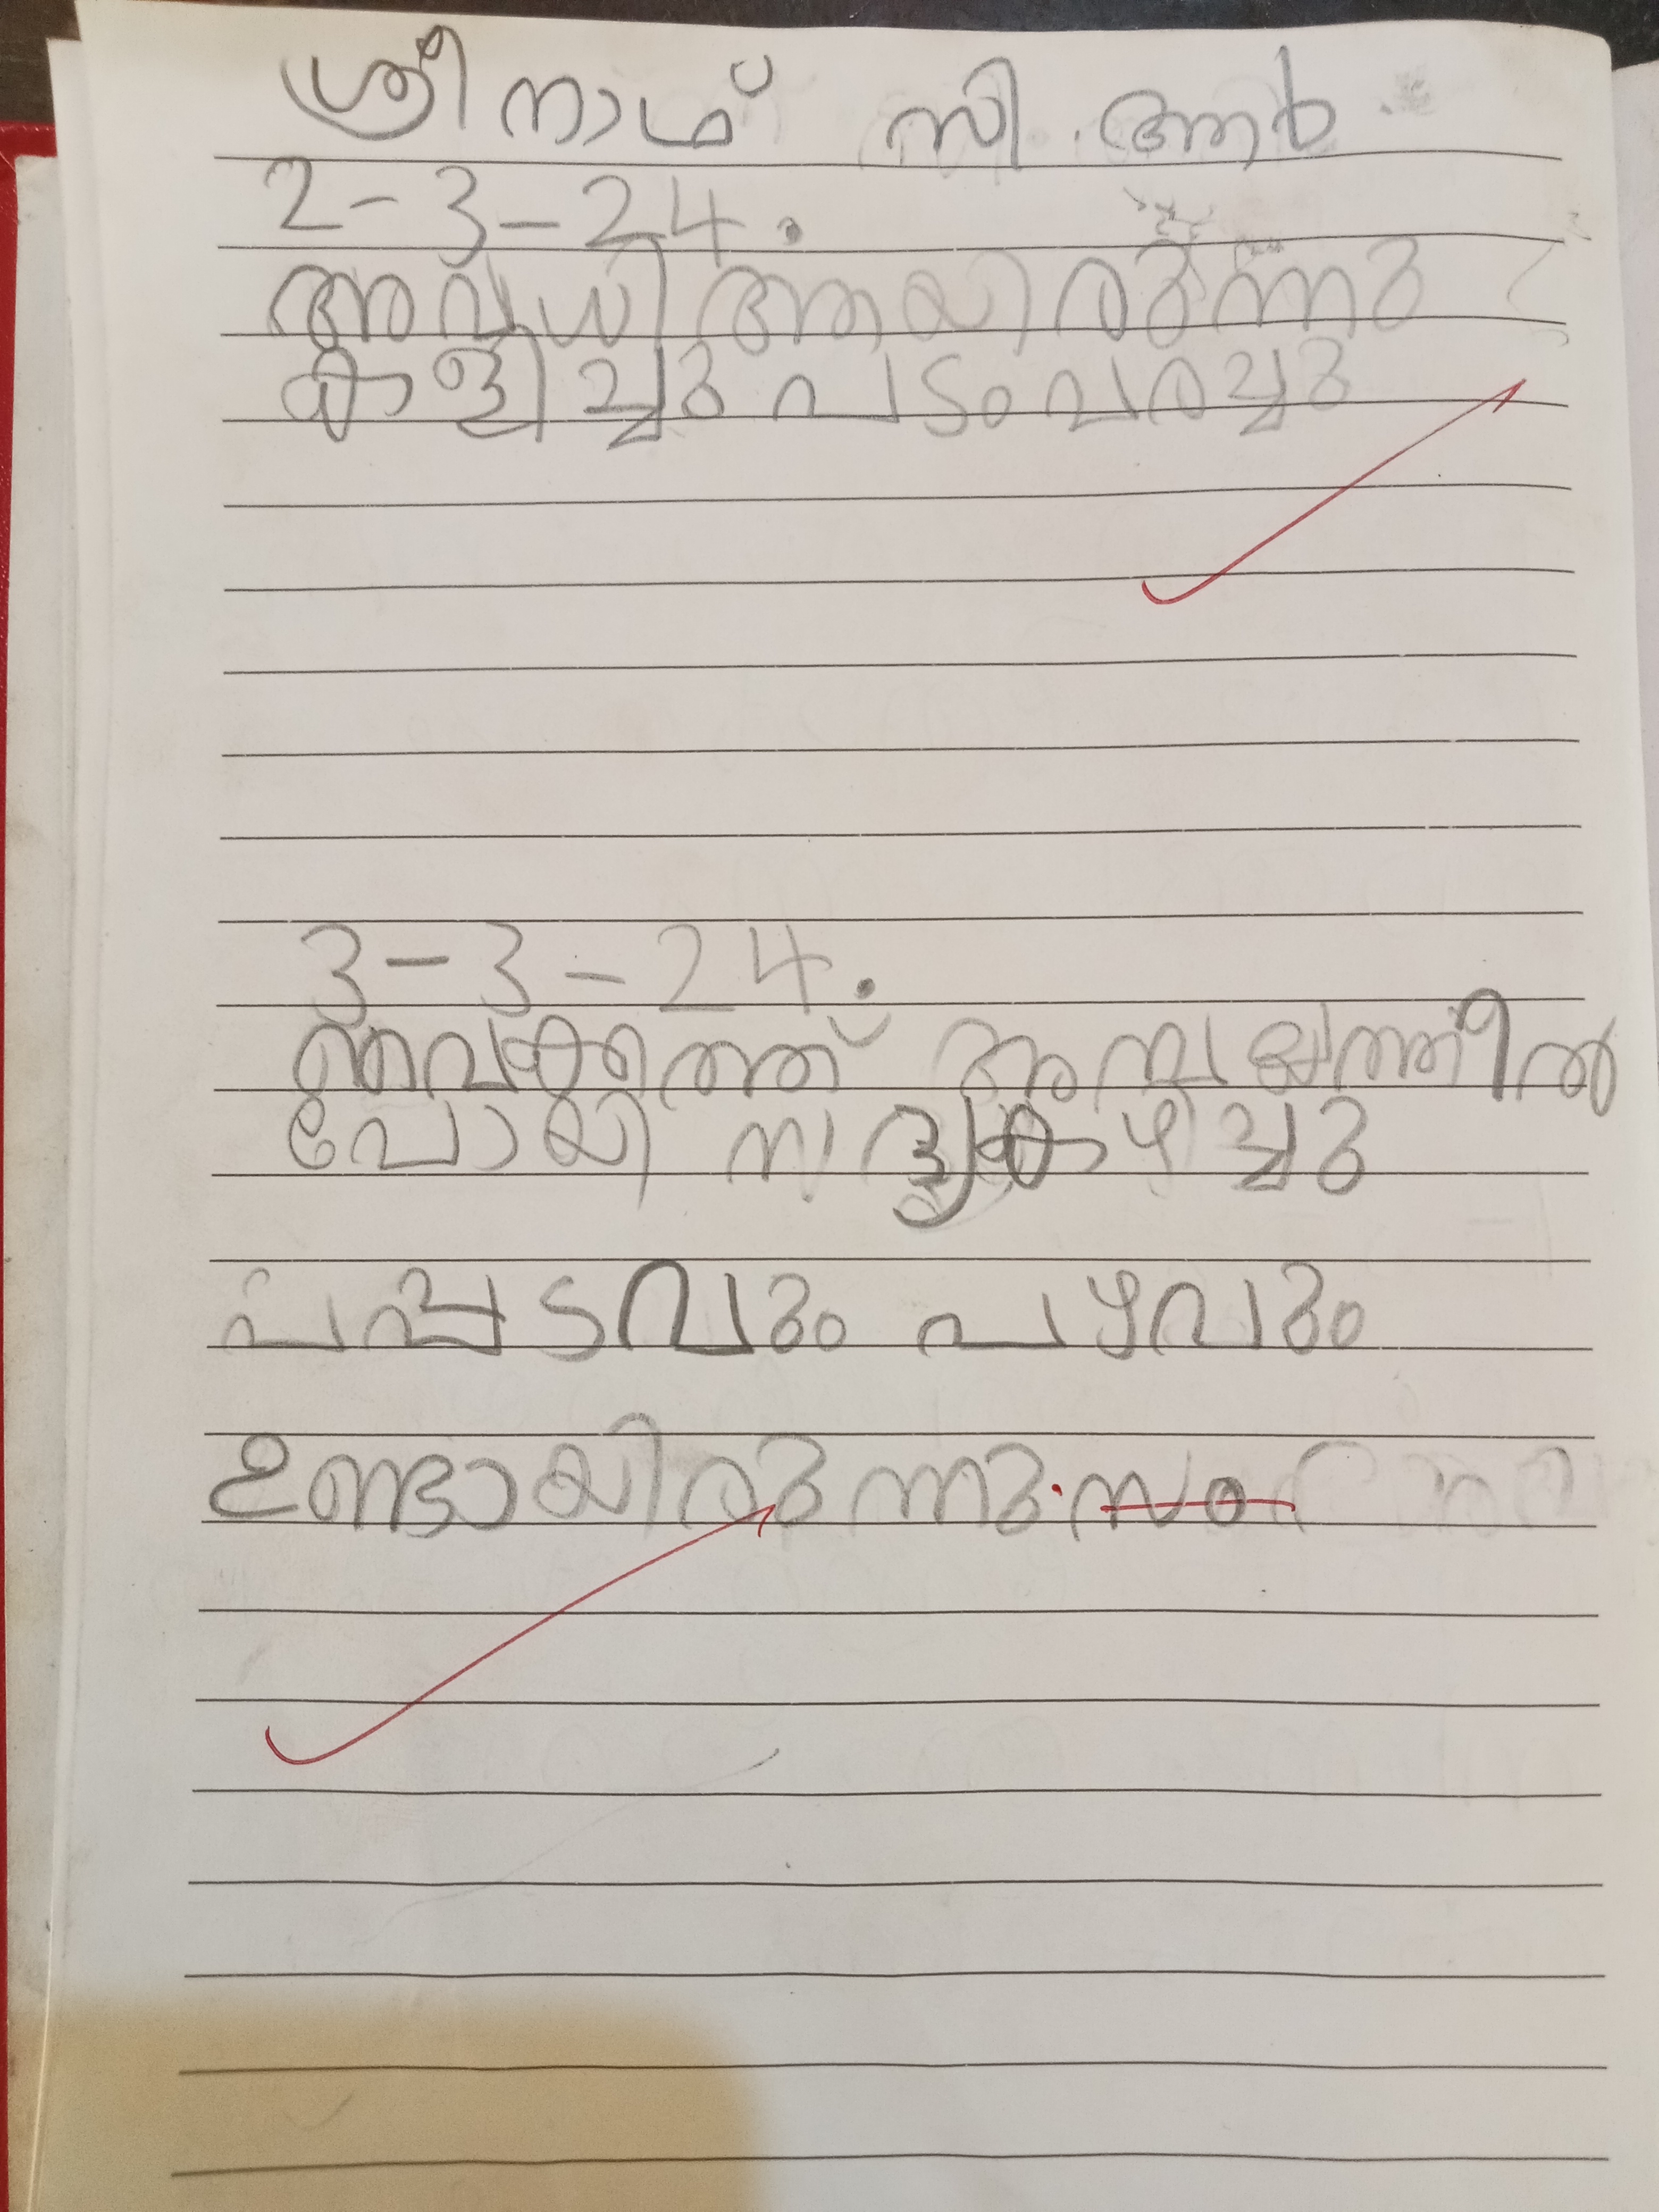 ശ്രീനാഥ് സി.ആർ
2-3-24.
അവധി ആയിരുന്നു
കളിച്ചു പടം വരച്ചു
3-3-24.
വൈക്കത്ത് അമ്പലത്തീൽ
പോയി സദ്യ കഴിച്ചു
പപ്പടവും പഴവും
ഉണ്ടായിരുന്നു. സം